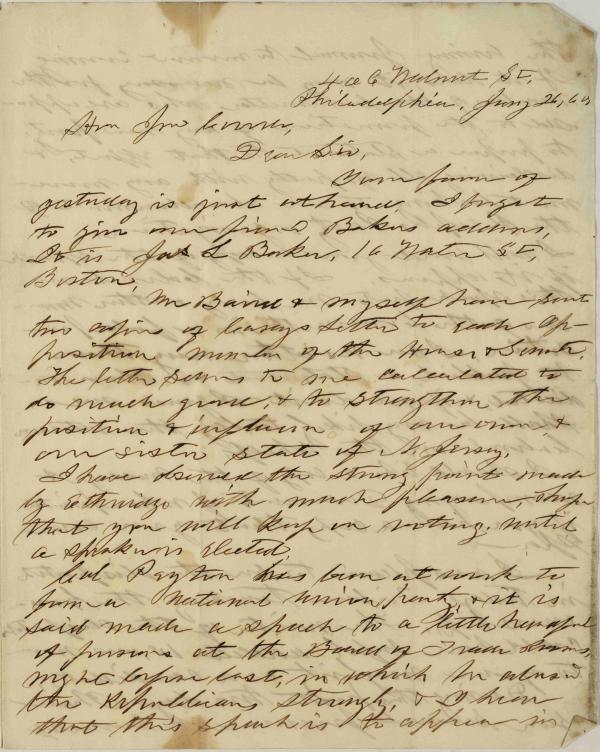 400 Walnut St,
Philadelphia, Jany 26, 60
Hon Jno Covode,
Dear Sir,
Your favor of
yesterday is just at hand, I forgot
to give our friend Bakers address,
It is Jas L Baker, 16 Water St,
Boston,
Mr Baird & myself have sent
two copies of Careys letter to each op-
position member of the House & Senate.
The letter seems to me calculated to
do much good, & to strengthen the
position & influence of our own &
our sister state of N. Jersey.
I have observed the strong points made
by Ethridge with much pleasure, I hope
that you will keep on voting, until
a speaker is elected,
Col Peyton has been at work to
form a National Union party, & it is
said made a speech to a little handful
of persons at the Board of Trade Rooms,
night before last, in which he abused
the Republicans strongly, & I hear
that this speech is to appear in